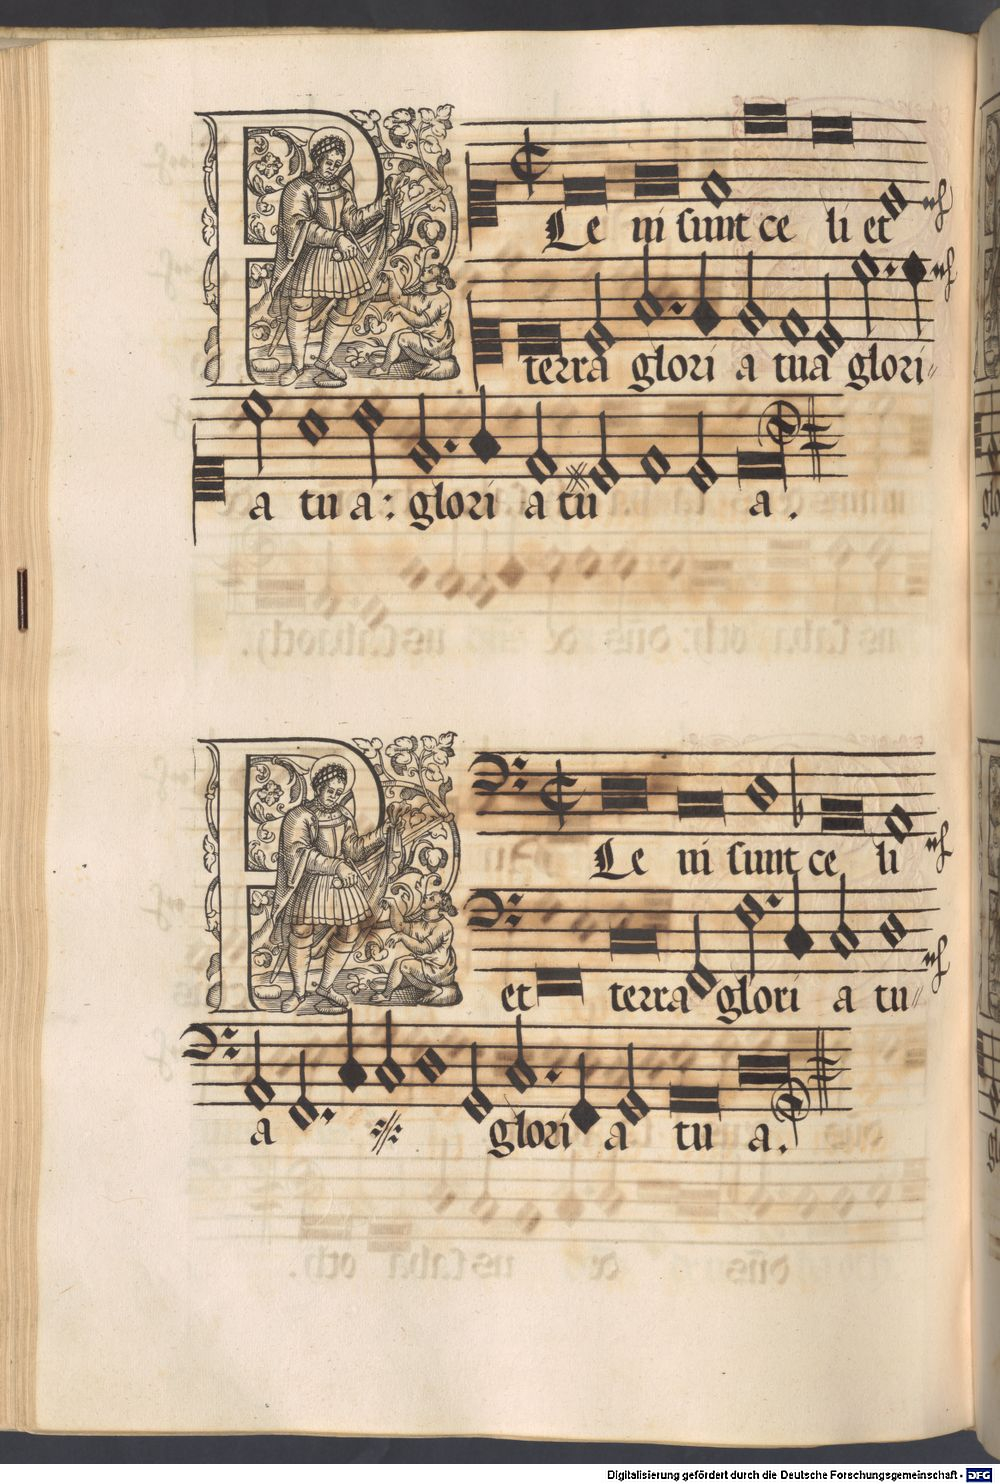 PLe ni sunt ce li et
terra glori a tua glori
a tu a: glori a tu a.
PLe ni sunt ce li
et terra glori a tu
a glori a tu a.
Digitalisierung gefördert durch die Deutsche Forschungsgemeinschaft - DFG